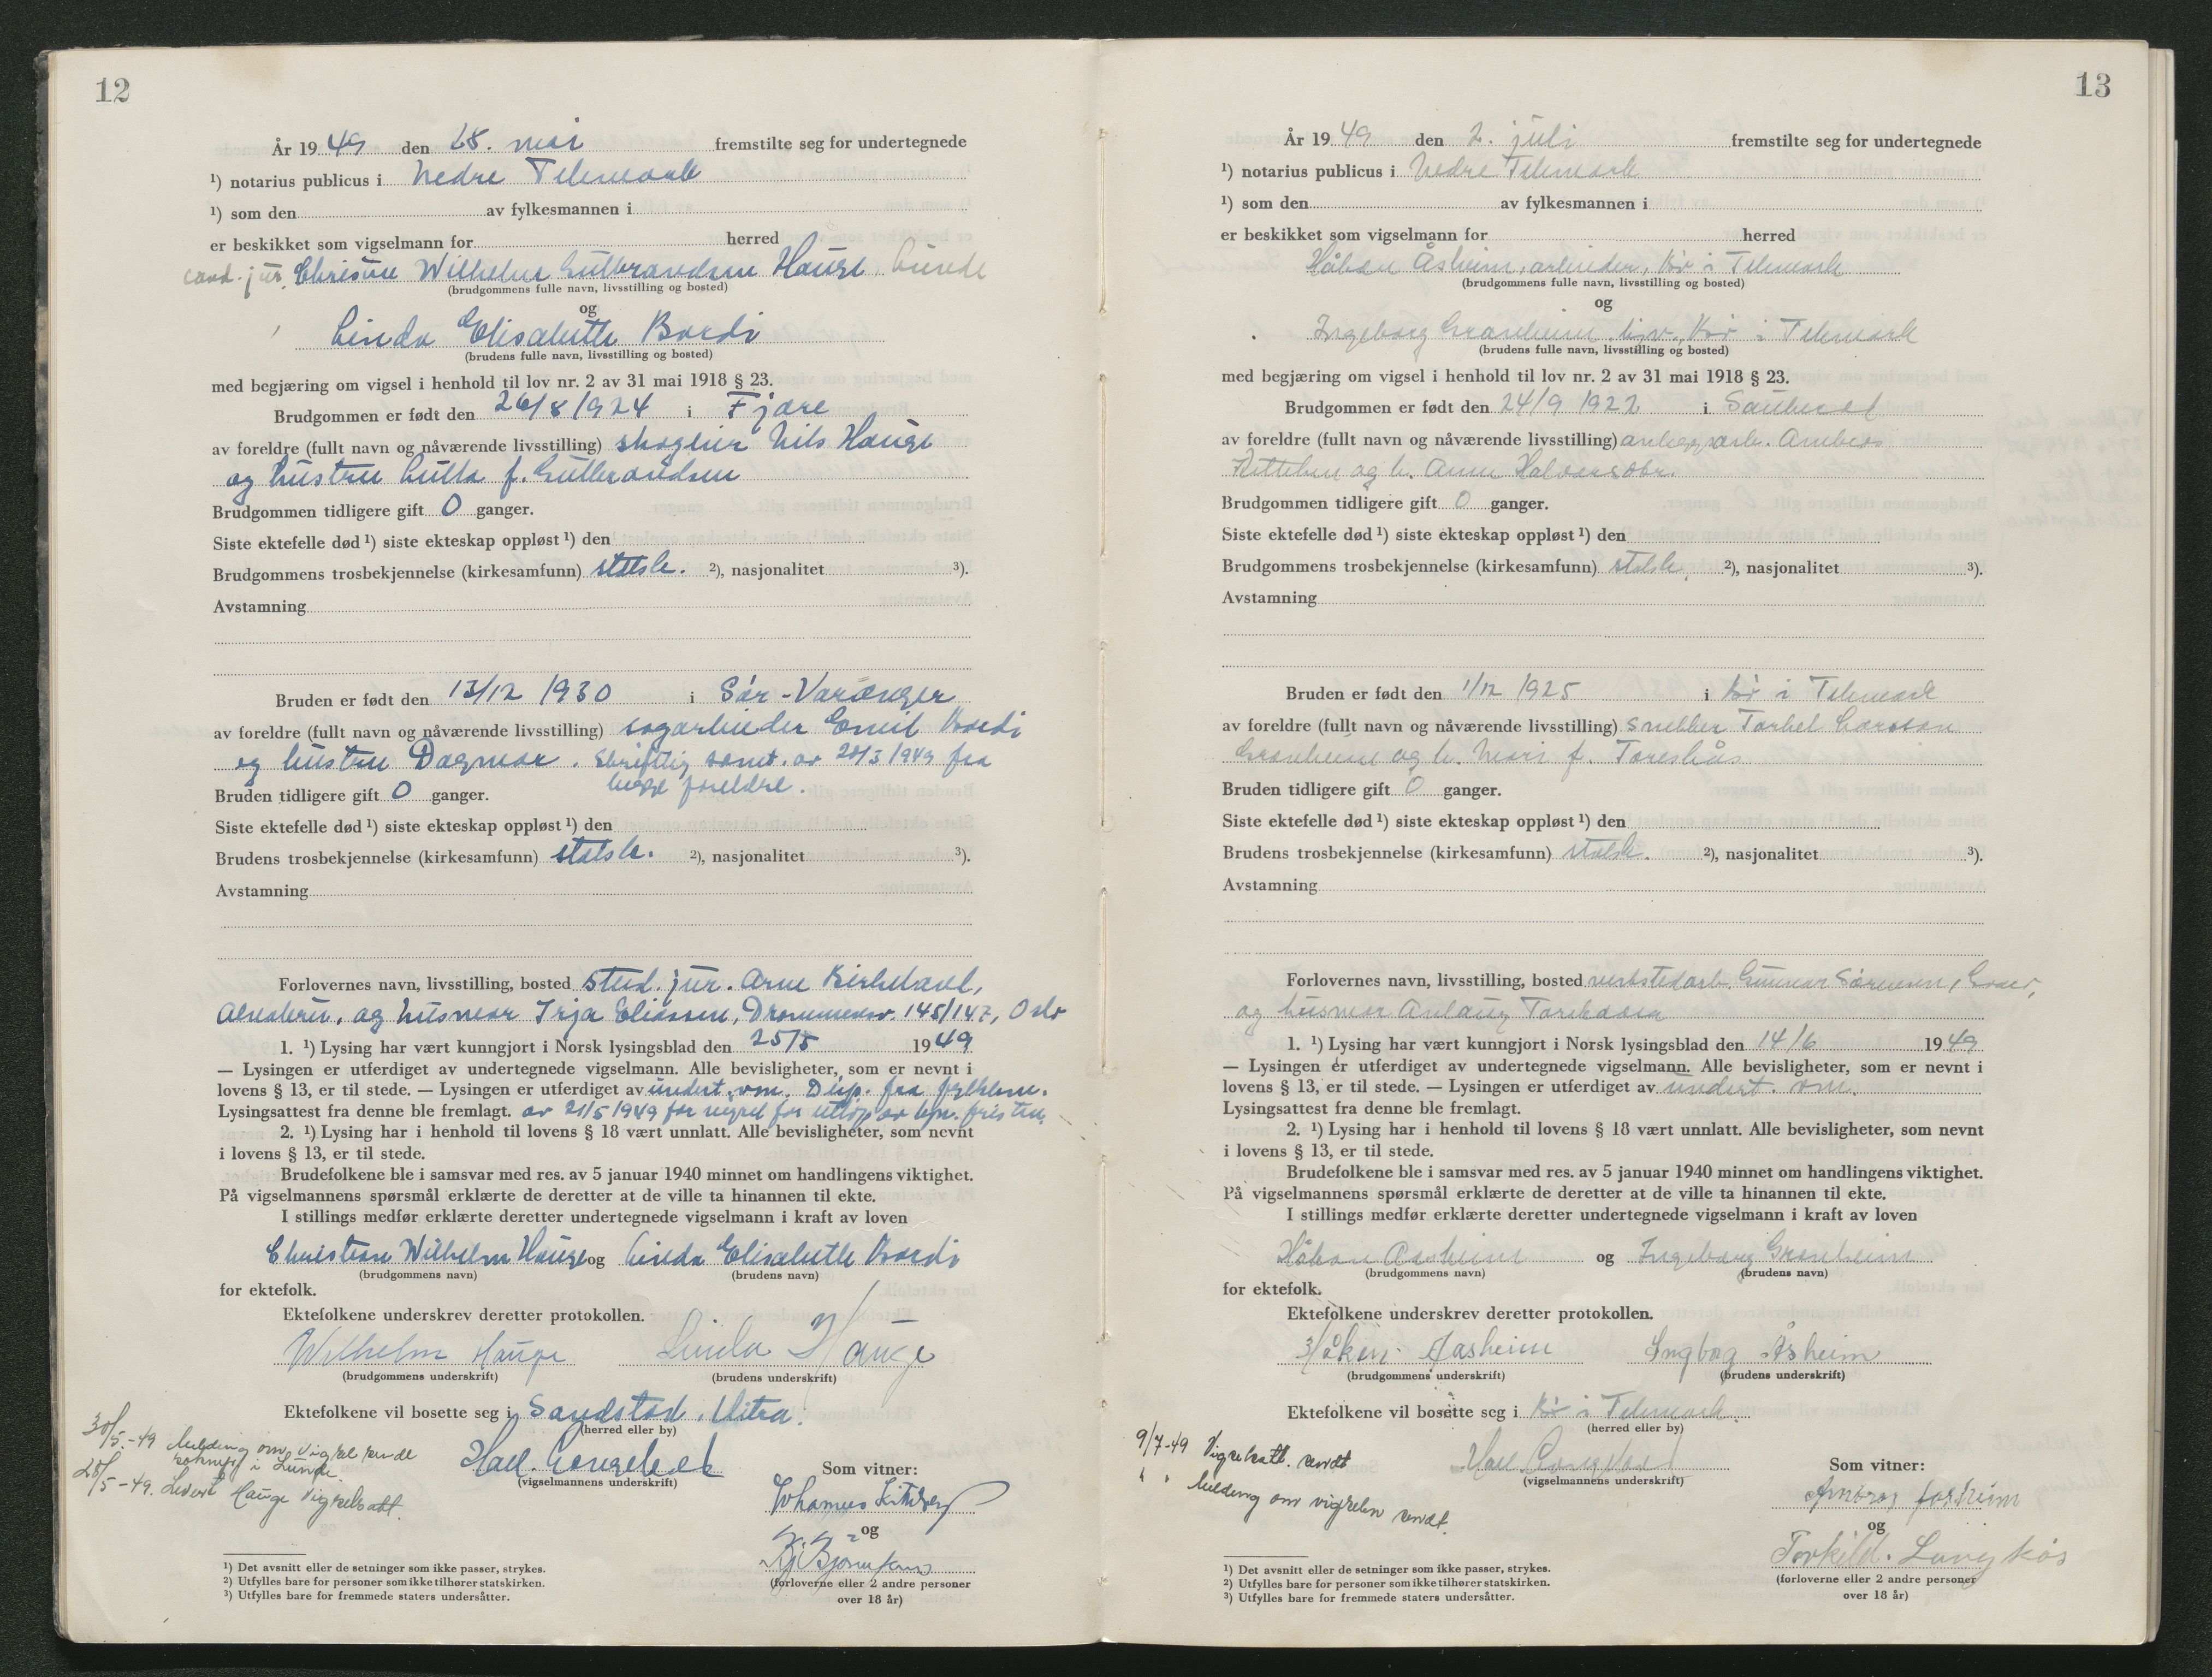 12
År 1949 den 28. mai fremstilte seg for undertegnede
¹) notarius publicus i Nedre Telemark
¹) som den av fylkesmannen i
er beskikket som vigselmann for herred
cand. jur. Christian Wilhelm Gulbrandsen Hauge Lunde
(brudgommens fulle navn, livsstilling og bosted)
og
Linda Elisabeth Bordi
(brudens fulle navn, livsstilling og bosted)
med begjæring om vigsel i henhold til lov nr. 2 av 31 mai 1918 § 23.
Brudgommen er født den 26/8 1924 i Fjære
av foreldre (fullt navn og nåværende livsstilling) skogeier Nils Hauge
og hustru f. Gulbrandsen
Brudgommen tidligere gift 0 ganger.
Siste ektefelle død ¹) siste ekteskap oppløst ¹) den
Brudgommens trosbekjennelse (kirkesamfunn) statsk. ²), nasjonalitet ³).
Avstamning
Bruden er født den 13/12 1930 i Sør-Varanger
av foreldre (fullt navn og nåværende livsstilling) sagarbeider Emil Bordi
og hustru Dagmar. Skriftlig samt. av 20/5 1949 fra
begge foreldre.
Bruden tidligere gift 0 ganger.
Siste ektefelle død ¹) siste ekteskap oppløst ¹) den
Brudens trosbekjennelse (kirkesamfunn) statsk. ²), nasjonalitet ³).
Avstamning
Forlovernes navn, livsstilling, bosted stud. jur. Arne Birkeland,
og husmor Irja Eliassen, Drammensv. 145/147, Oslo
1. ¹) Lysing har vært kunngjort i Norsk lysingsblad den 25/5 1949
— Lysingen er utferdiget av undertegnede vigselmann. Alle bevisligheter, som er nevnt i
lovens § 13, er til stede. — Lysingen er utferdiget av undert. vm. Disp. fra fylkesm.
Lysingsattest fra denne ble fremlagt. av 21/5 1949 for vigsel før utløp av lysn. fristen.
2. ¹) Lysing har i henhold til lovens § 18 vært unnlatt. Alle bevisligheter, som nevnt
i lovens § 13, er til stede.
Brudefolkene ble i samsvar med res. av 5 januar 1940 minnet om handlingens viktighet.
På vigselmannens spørsmål erklærte de deretter at de ville ta hinannen til ekte.
I stillings medfør erklærte deretter undertegnede vigselmann i kraft av loven
Christian Wilhelm Hauge og Linda Elisabeth Bordi
(brudgommens navn) (brudens navn)
for ektefolk.
Ektefolkene underskrev deretter protokollen.
Wilhelm Hauge Linda Hauge
(brudgommens underskrift) (brudens underskrift)
Ektefolkene vil bosette seg i Sandstad, Hitra.
(herred eller by)
30/5-49 Melding om vigsel sendt
soknepr. i Lunde.
28/5-49. Levert Hauge vigselsatt.
(vigselmannens underskrift)
Som vitner:
Johannes
og
(forloverne eller 2 andre personer
over 18 år)
¹) Det avsnitt eller de setninger som ikke passer, strykes.
²) Utfylles bare for personer som ikke tilhører statskirken.
³) Utfylles bare for fremmede staters undersåtter.
13
År 1949 den 2. juli fremstilte seg for undertegnede
¹) notarius publicus i Nedre Telemark
¹) som den av fylkesmannen i
er beskikket som vigselmann for herred
Håkon Åsheim, arbeider, Bø i Telemark
(brudgommens fulle navn, livsstilling og bosted)
og
Ingeborg Grønheim, Bø i Telemark
(brudens fulle navn, livsstilling og bosted)
med begjæring om vigsel i henhold til lov nr. 2 av 31 mai 1918 § 23.
Brudgommen er født den 24/9 1922 i Sauherad
av foreldre (fullt navn og nåværende livsstilling) anleggsarb. Ambros
og h. Anne Halvorsdtr.
Brudgommen tidligere gift 0 ganger.
Siste ektefelle død ¹) siste ekteskap oppløst ¹) den
Brudgommens trosbekjennelse (kirkesamfunn) statsk. ²), nasjonalitet ³).
Avstamning
Bruden er født den 1/12 1925 i Bø i Telemark
av foreldre (fullt navn og nåværende livsstilling) snekker Torkel Larsson
Grønheim og h. Mari f. Toreskås
Bruden tidligere gift 0 ganger.
Siste ektefelle død ¹) siste ekteskap oppløst ¹) den
Brudens trosbekjennelse (kirkesamfunn) statsk. ²), nasjonalitet ³).
Avstamning
Forlovernes navn, livsstilling, bosted verkstedarb. Gunnar Sørensen,
og husmor Anlaug
1. ¹) Lysing har vært kunngjort i Norsk lysingsblad den 14/6 1949
— Lysingen er utferdiget av undertegnede vigselmann. Alle bevisligheter, som er nevnt i
lovens § 13, er til stede. — Lysingen er utferdiget av undert. vm.
Lysingsattest fra denne ble fremlagt.
2. ¹) Lysing har i henhold til lovens § 18 vært unnlatt. Alle bevisligheter, som nevnt
i lovens § 13, er til stede.
Brudefolkene ble i samsvar med res. av 5 januar 1940 minnet om handlingens viktighet.
På vigselmannens spørsmål erklærte de deretter at de ville ta hinannen til ekte.
I stillings medfør erklærte deretter undertegnede vigselmann i kraft av loven
Håkon Aasheim og Ingeborg Grønheim
(brudgommens navn) (brudens navn)
for ektefolk.
Ektefolkene underskrev deretter protokollen.
Håken Aasheim Ingbog Åsheim
(brudgommens underskrift) (brudens underskrift)
Ektefolkene vil bosette seg i Bø i Telemark.
(herred eller by)
9/7-49 Vigselsatt. sendt
" " Melding om vigselen sendt.
(vigselmannens underskrift)
Som vitner:
Ambros Aasheim
og
Torkild. Langkås
(forloverne eller 2 andre personer
over 18 år)
¹) Det avsnitt eller de setninger som ikke passer, strykes.
²) Utfylles bare for personer som ikke tilhører statskirken.
³) Utfylles bare for fremmede staters undersåtter.